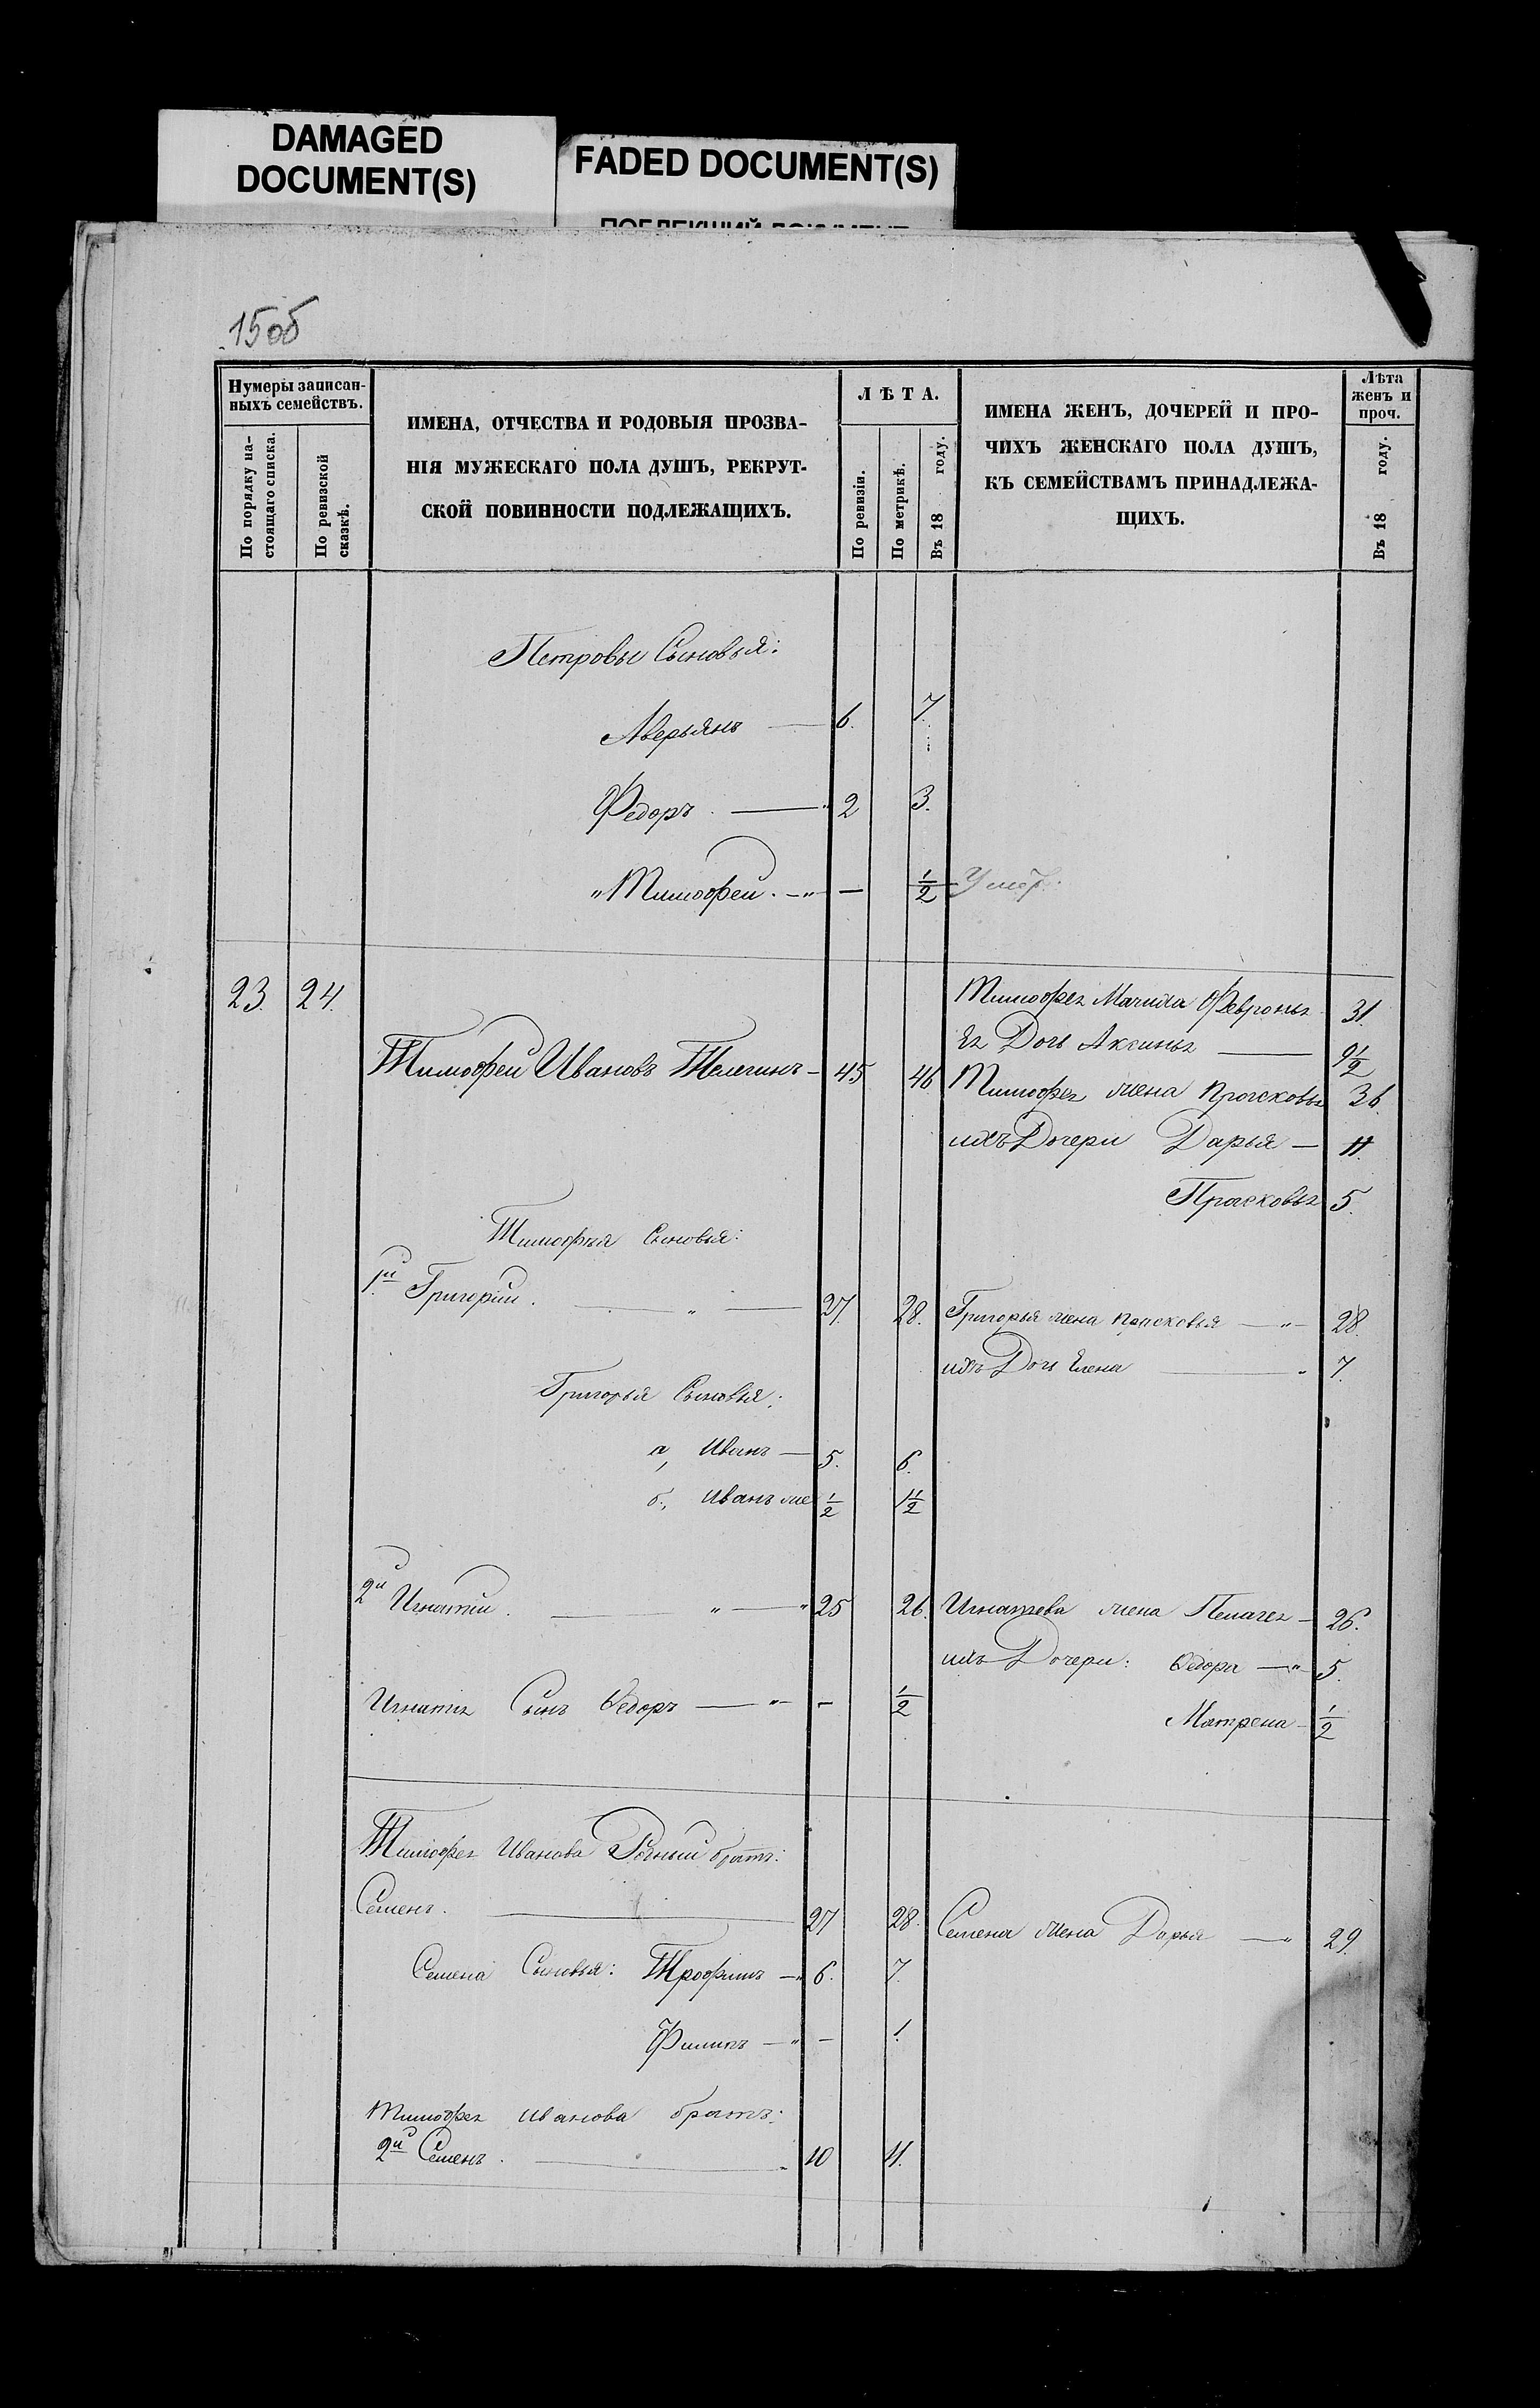 DAMAGED
DOCUMENT(S)
FADED DOCUMENT(S)
ПОБЛЕКШИЙ ДОКУМЕНТ
15об
Нумеры записан-
ныхъ семействъ.
По порядку на-
стоящаго списка.
По ревизской
сказкѣ.
ИМЕНА, ОТЧЕСТВА И РОДОВЫЯ ПРОЗВА-
НІЯ МУЖЕСКАГО ПОЛА ДУШЪ, РЕКРУТ-
СКОЙ ПОВИННОСТИ ПОДЛЕЖАЩИХЪ.
ЛѢТА.
По ревизіи.
По метрикѣ.
Въ 18 году.
ИМЕНА ЖЕНЪ, ДОЧЕРЕЙ И ПРО-
ЧИХЪ ЖЕНСКАГО ПОЛА ДУШЪ,
КЪ СЕМЕЙСТВАМЪ ПРИНАДЛЕЖА-
ЩИХЪ.
Лѣта
женъ и
проч.
Въ 18 году.
Петровы Сыновья:
Аверьянъ — 6. 7.
Федоръ — 2 3.
Тимофей — — 1/2 Умер.
23. 24.
Тимофея Мачиха Февронья 31.
Ея Дочь Аксинья — 9 1/2
Тимофей Ивановъ Телегинъ — 45 46
Тимофея жена Прасковья 36
ихъ Дочери Дарья — 11.
Прасковья 5.
Тимофея Сыновья:
1й Григорий — 27. 28. Григорья жена Прасковья — 28.
ихъ Дочь Елена — 7.
Григорья Сыновья:
а, Иванъ — 5. 6.
б., Иванъ же 1/2 1 1/2
2й Игнатий — 25 26. Игнатева жена Пелагея — 26.
ихъ Дочери: Федора — 5.
Игнатя Сынъ Федоръ — — 1/2
Матрена — 1/2
Тимофея Иванова Родный братъ:
Семенъ. — 27 28. Семена жена Дарья — 29.
Семена Сыновья: Трофимъ — 6. 7.
Филипъ — — 1.
Тимофея Иванова братъ:
2й Семенъ. — 10 11.